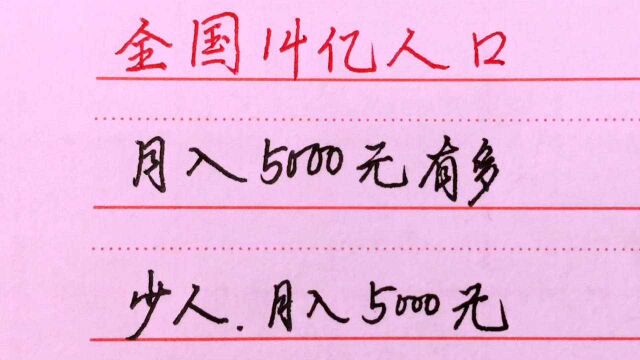 全国14亿人口
月入5000元有多
少人.月入5000元